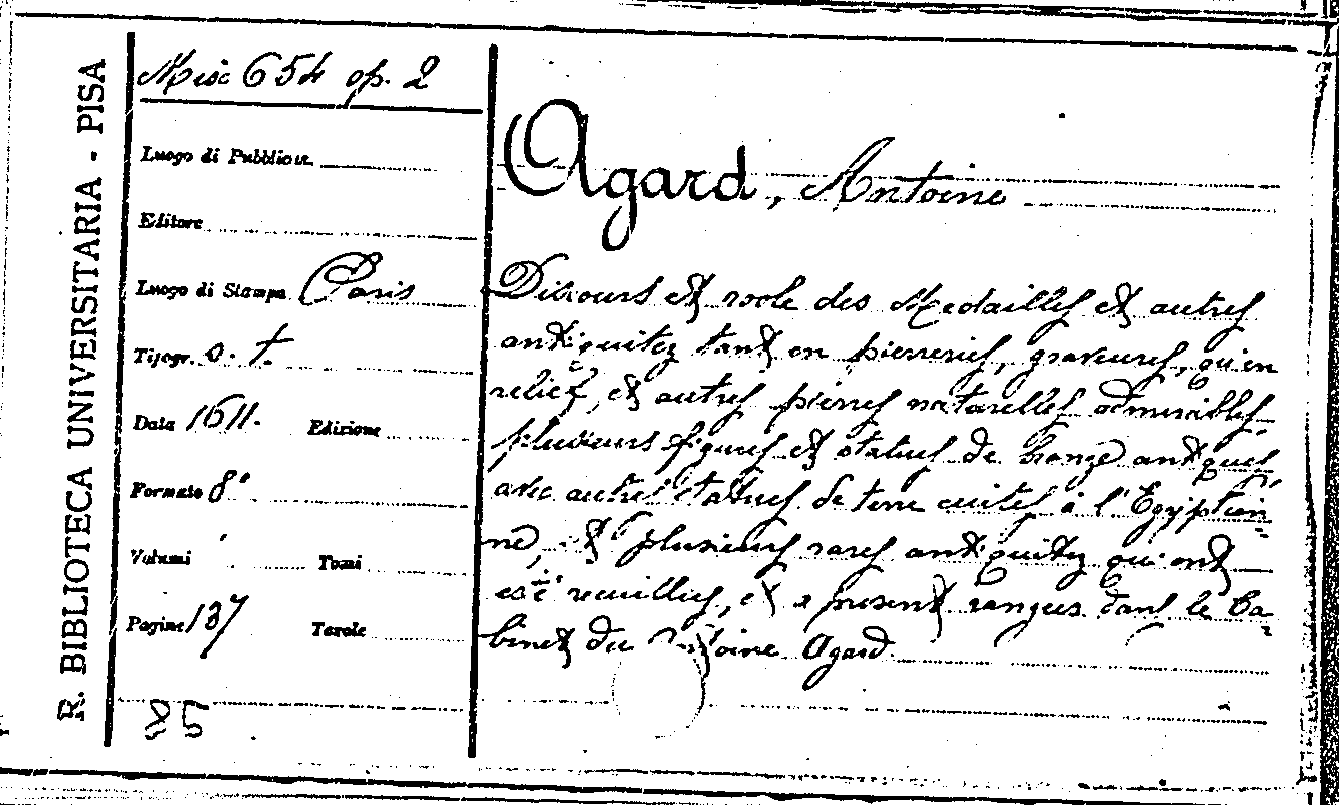 R. BIBLIOTECA UNIVERSITARIA - PISA
Misc 654 op. 2
Luogo di Pubblicaz.
Editore
Luogo di Stampa Paris
Tipogr. s. t.
Data 1611. Edizione
Formato 8°
Volumi Tomi
Pagine 137 Tavole
85
Agard, Antoine
Discours et role des Medailles et autres
antiquitez tant en pierreries, graveures, qu'en
relief, et autres pierres naturelles admirables
plusieurs figures et statues de bronze antiques,
avec autres statues de terre cuites à l'Egyptien-
ne, et plusieurs rares antiquitez qui ont
esté recuillies, et a present rangees dans le Ca-
binet du Antoine Agard.